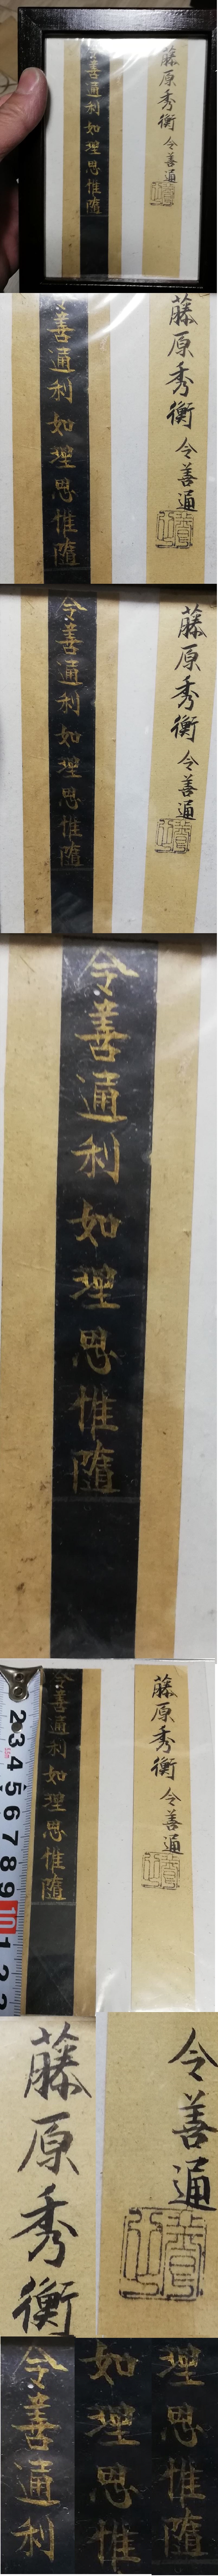 藤原秀衡 令善通
令善通利如理思惟隨
藤原秀衡 令善通
善通利如理思惟隨
藤原秀衡 令善通
令善通利如理思惟隨
令善通利如理思惟隨
藤原秀衡 令善通
令善通利如理思惟隨
2 3 4 5 6 7 8 9 10 1 2 3
藤原秀衡
令善通
令善通利
如理思惟
理思惟隨